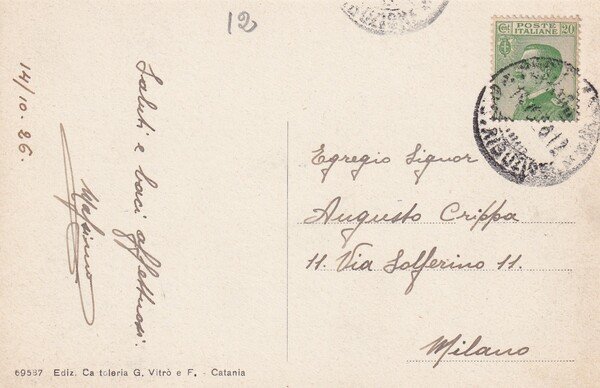 12
Cᴍɪ
POSTE
ITALIANE
20
14/10.26.
Saluti e baci affettuosi.
Massimo
Egregio Signor
Augusto Crippa
11. Via Solferino 11.
Milano
69587 Ediz. Ca toleria G. Vitrò e F. - Catania